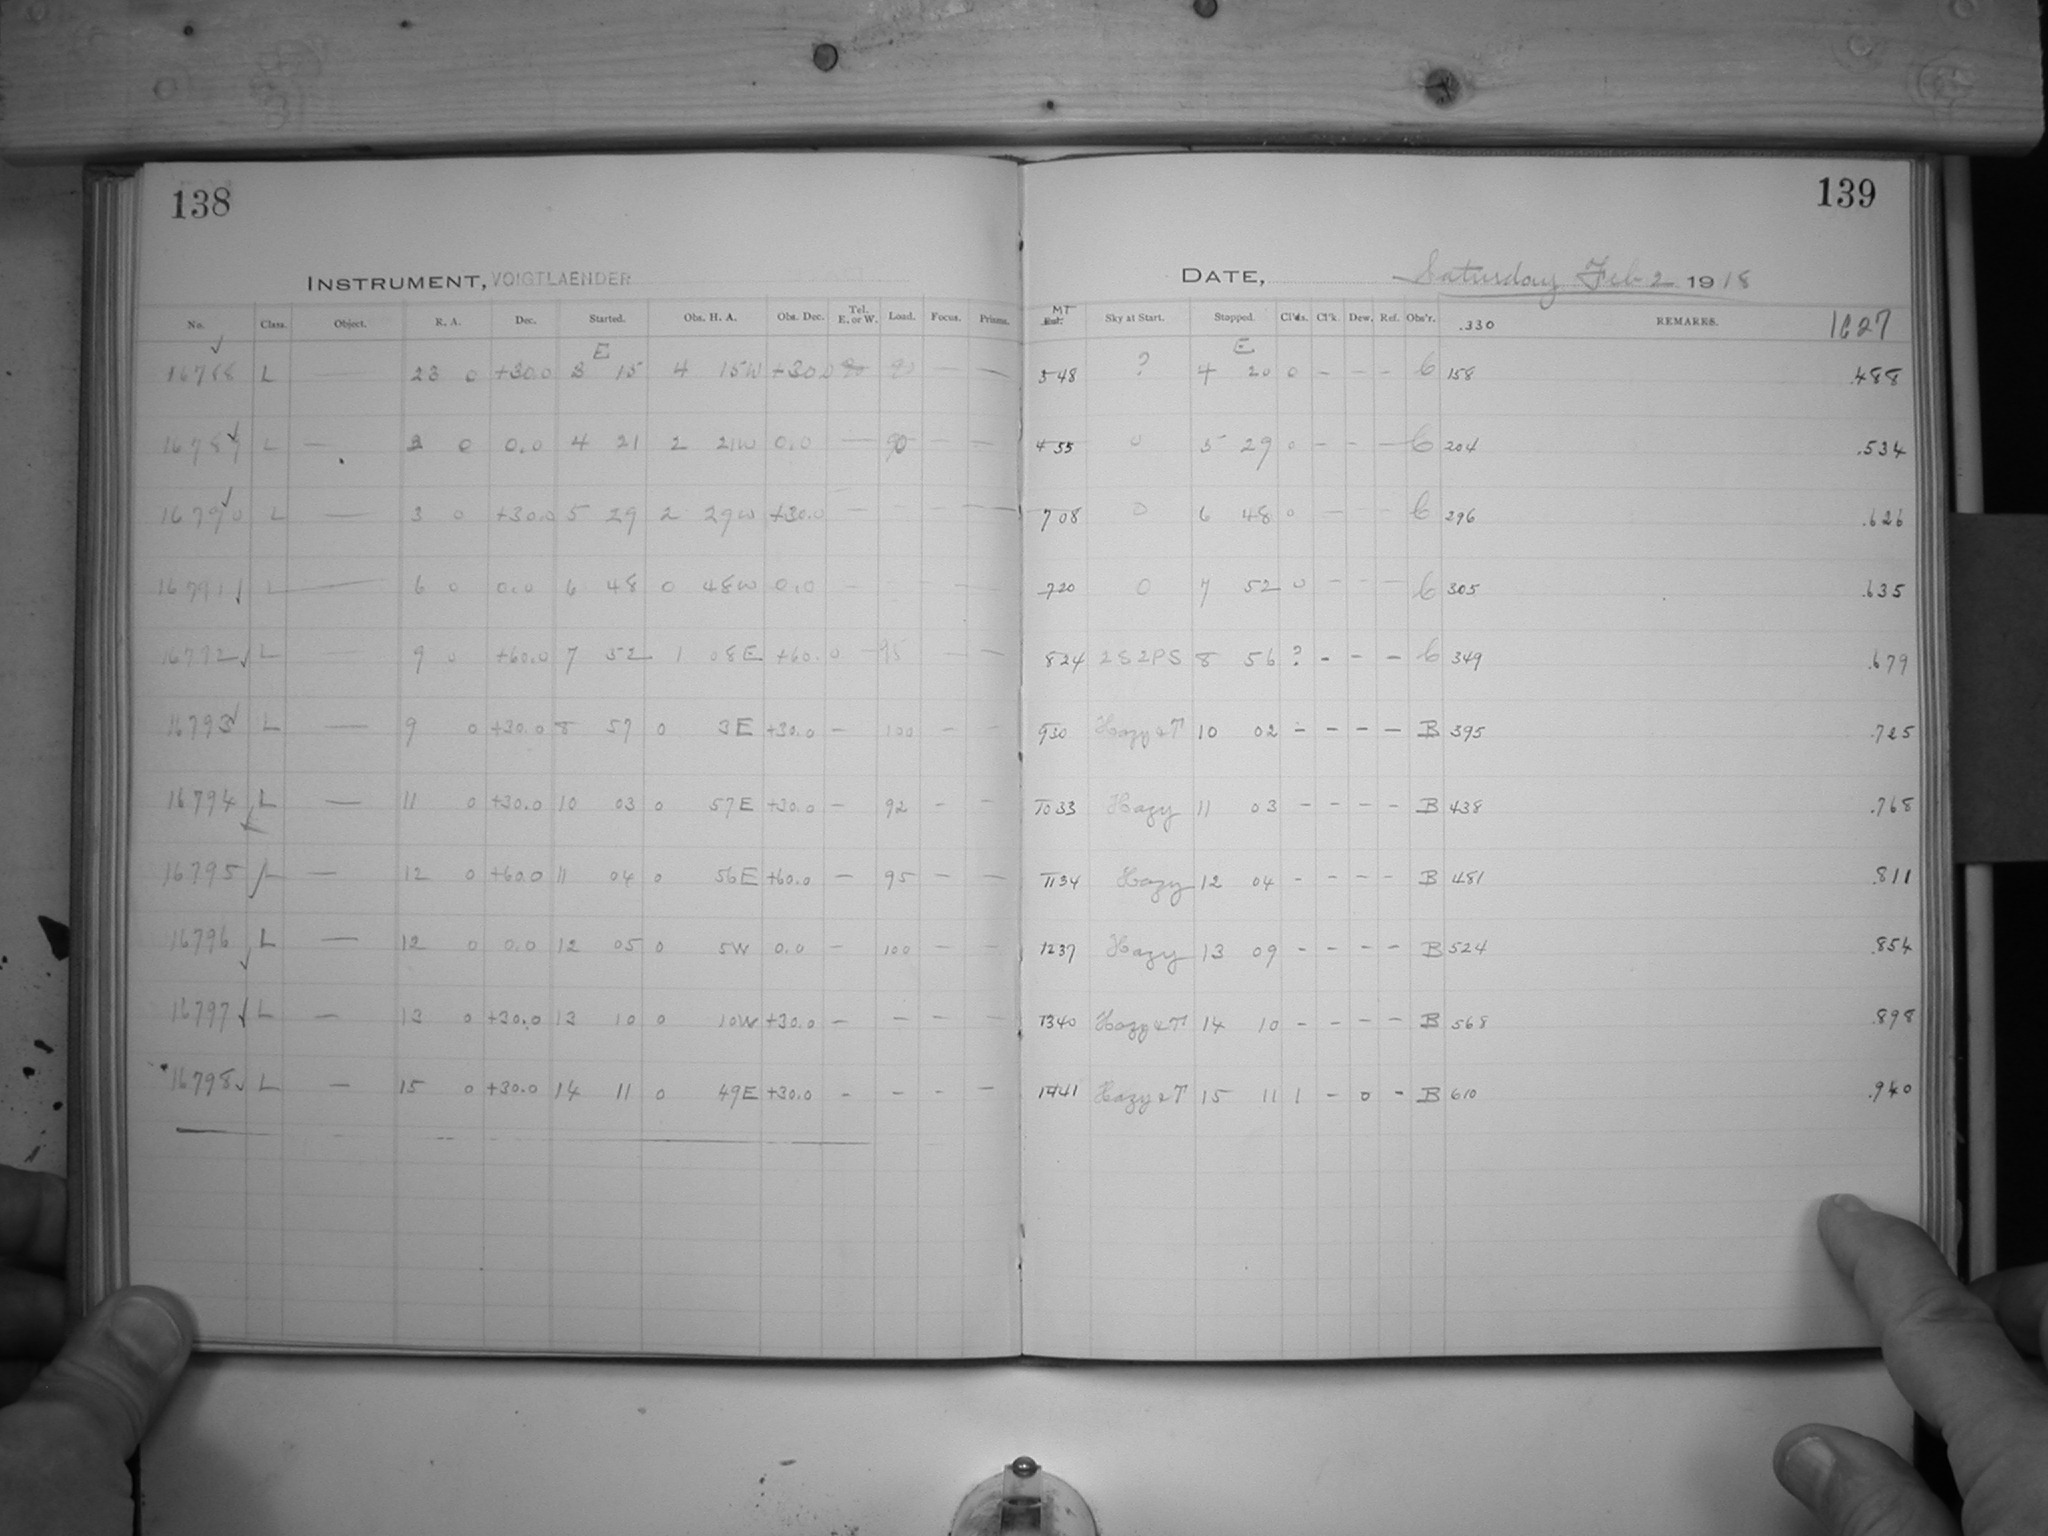 138
INSTRUMENT, VOIGTLAENDER
No. Class. Object. R. A. Dec. Started. Obs. H. A. Obs. Dec. Tel. E. or W. Load. Focus. Prisms.
E
16788 L — 23 0 +30.0 3 15 4 15W +30.0 90 — —
16789 L — 3 0 0.0 4 21 2 21W 0.0 — 90 — —
16790 L — 3 0 +30.0 5 29 2 29W +30.0 — - — —
16791 L — 6 0 0.0 6 48 0 48W 0.0 - - — —
16792 L — 9 0 +60.0 7 52 1 08E +60.0 — 95 — —
16793 L — 9 0 +30.0 8 57 0 3E +30.0 — 100 — —
16794 L — 11 0 +30.0 10 03 0 57E +30.0 — 92 - -
16795 L — 12 0 +60.0 11 04 0 56E +60.0 — 95 — —
16796 L — 12 0 0.0 12 05 0 5W 0.0 - 100 — —
16797 L — 13 0 +30.0 13 10 0 10W +30.0 — — — —
16798 L — 15 0 +30.0 14 11 0 49E +30.0 - - - —
139
DATE, Saturday Feb 2 1918
MT Sky at Start. Stopped. Cl'ds. Cl'k. Dew. Ref. Obs'r. .330 REMARKS. 1627
E
548 ? 4 20 0 - - - C 158 .488
0 5 29 0 - - — C 204 .534
708 0 6 48 0 — - C 296 .626
720 0 7 52 0 - - — C 305 .635
824 2S2PS 8 56 ? - - — C 349 .679
930 Hazy & T 10 02 - - - — B 395 .725
1033 Hazy 11 03 - - - - B 438 .768
1134 Hazy 12 04 - - - - B 481 .811
1237 Hazy 13 09 - - - - B 524 .854
1340 Hazy & T 14 10 - - - - B 568 .898
1441 Hazy & T 15 11 1 - 0 - B 610 .940